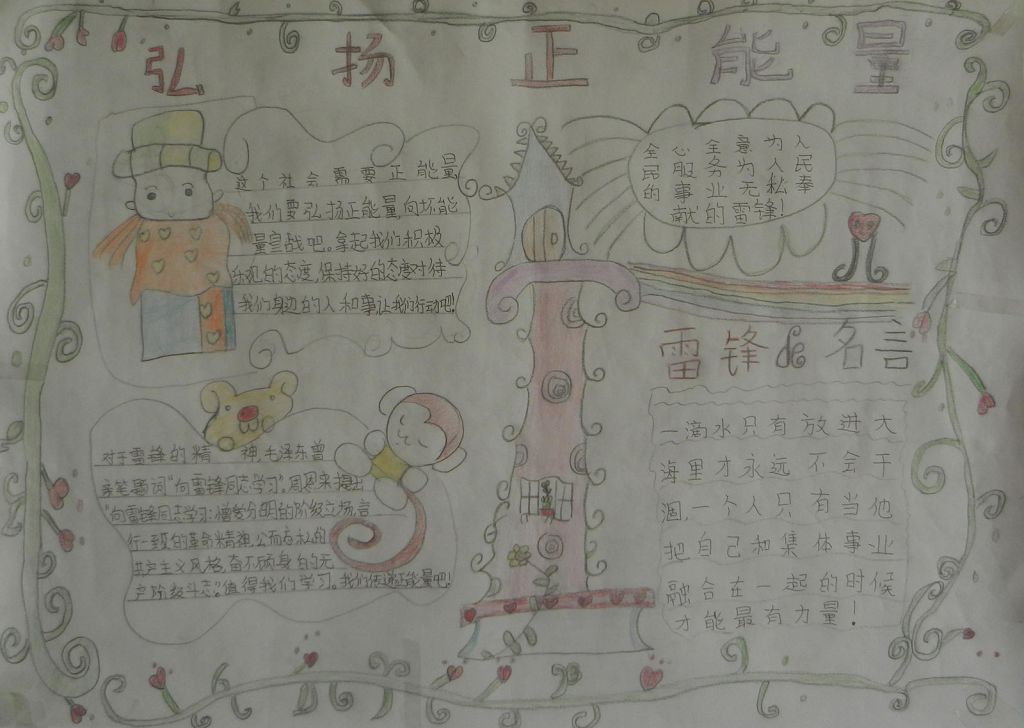 弘扬正能量
这个社会需要正能量
我们要弘扬正能量,向坏能
量宣战吧。拿起我们积极
乐观的态度,保持好的态度对待
我们身边的人和事让我们行动吧!
全心全意为人
民服务为人民
的事业无私奉
献的雷锋!
雷锋的名言
一滴水只有放进大
海里才永远不会干
涸,一个人只有当他
把自己和集体事业
融合在一起的时候
才能最有力量!
对于雷锋的精神,毛泽东曾
亲笔题词“向雷锋同志学习”。周恩来提出
“向雷锋同志学习:憎爱分明的阶级立场,言
行一致的革命精神,公而忘私的
共产主义风格,奋不顾身的无
产阶级斗志。”值得我们学习。我们传递正能量吧!